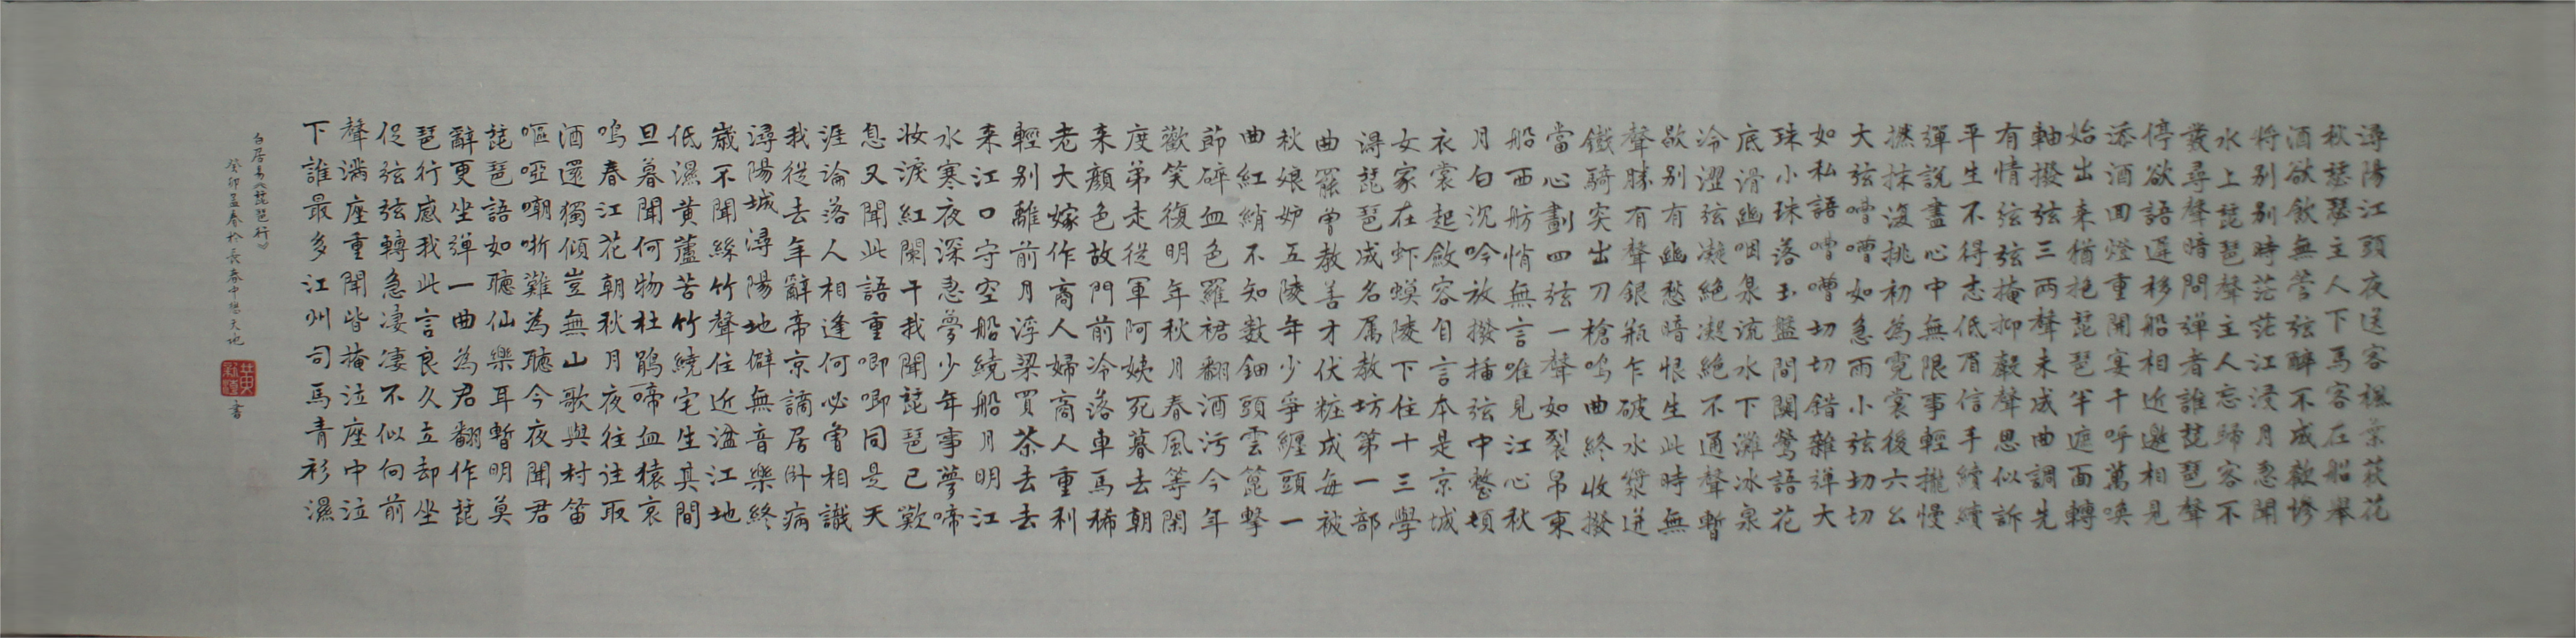 潯陽江頭夜送客楓葉荻花
秋瑟瑟主人下馬客在船舉
酒欲飲無管弦醉不成歡慘
將别别時茫茫江浸月忽聞
水上琵琶聲主人忘歸客不
發尋聲暗問彈者誰琵琶聲
停欲語遲移船相近邀相見
添酒回燈重開宴千呼萬喚
始出来猶抱琵琶半遮面轉
軸撥弦三兩聲未成曲調先
有情弦弦掩抑聲聲思似訴
平生不得志低眉信手續續
彈說盡心中無限事輕攏慢
撚抹復挑初為霓裳後六幺
大弦嘈嘈如急雨小弦切切
如私語嘈嘈切切錯雜彈大
珠小珠落玉盤間關鶯語花
底滑幽咽泉流水下灘冰泉
冷澀弦凝絕凝絕不通聲暫
歇别有幽愁暗恨生此時無
聲勝有聲銀瓶乍破水漿迸
鐵騎突出刀槍鳴曲終收撥
當心劃四弦一聲如裂帛東
船西舫悄無言唯見江心秋
月白沉吟放撥插弦中整頓
衣裳起斂容自言本是京城
女家在虾蟆陵下住十三學
得琵琶成名属教坊第一部
曲罷曾教善才伏粧成每被
秋娘妒五陵年少爭纏頭一
曲紅綃不知數鈿頭雲篦擊
節碎血色羅裙翻酒污今年
歡笑復明年秋月春風等閑
度弟走從軍阿姨死暮去朝
来顏色故門前冷落車馬稀
老大嫁作商人婦商人重利
輕别離前月浮梁買茶去去
来江口守空船繞船月明江
水寒夜深忽夢少年事夢啼
妝淚紅闌干我聞琵琶已歎
息又聞此語重唧唧同是天
涯淪落人相逢何必曾相識
我從去年辭帝京謫居卧病
潯陽城潯陽地僻無音樂終
歲不聞絲竹聲住近湓江地
低濕黄蘆苦竹繞宅生其間
旦暮聞何物杜鵑啼血猿哀
鳴春江花朝秋月夜往往取
酒還獨傾豈無山歌與村笛
嘔啞嘲哳難為聽今夜聞君
琵琶語如聽仙樂耳暫明莫
辭更坐彈一曲為君翻作琵
琶行感我此言良久立却坐
促弦弦轉急凄凄不似向前
聲满座重聞皆掩泣座中泣
下誰最多江州司馬青衫濕
白居易《琵琶行》
癸卯孟春於長春中懋天地 書